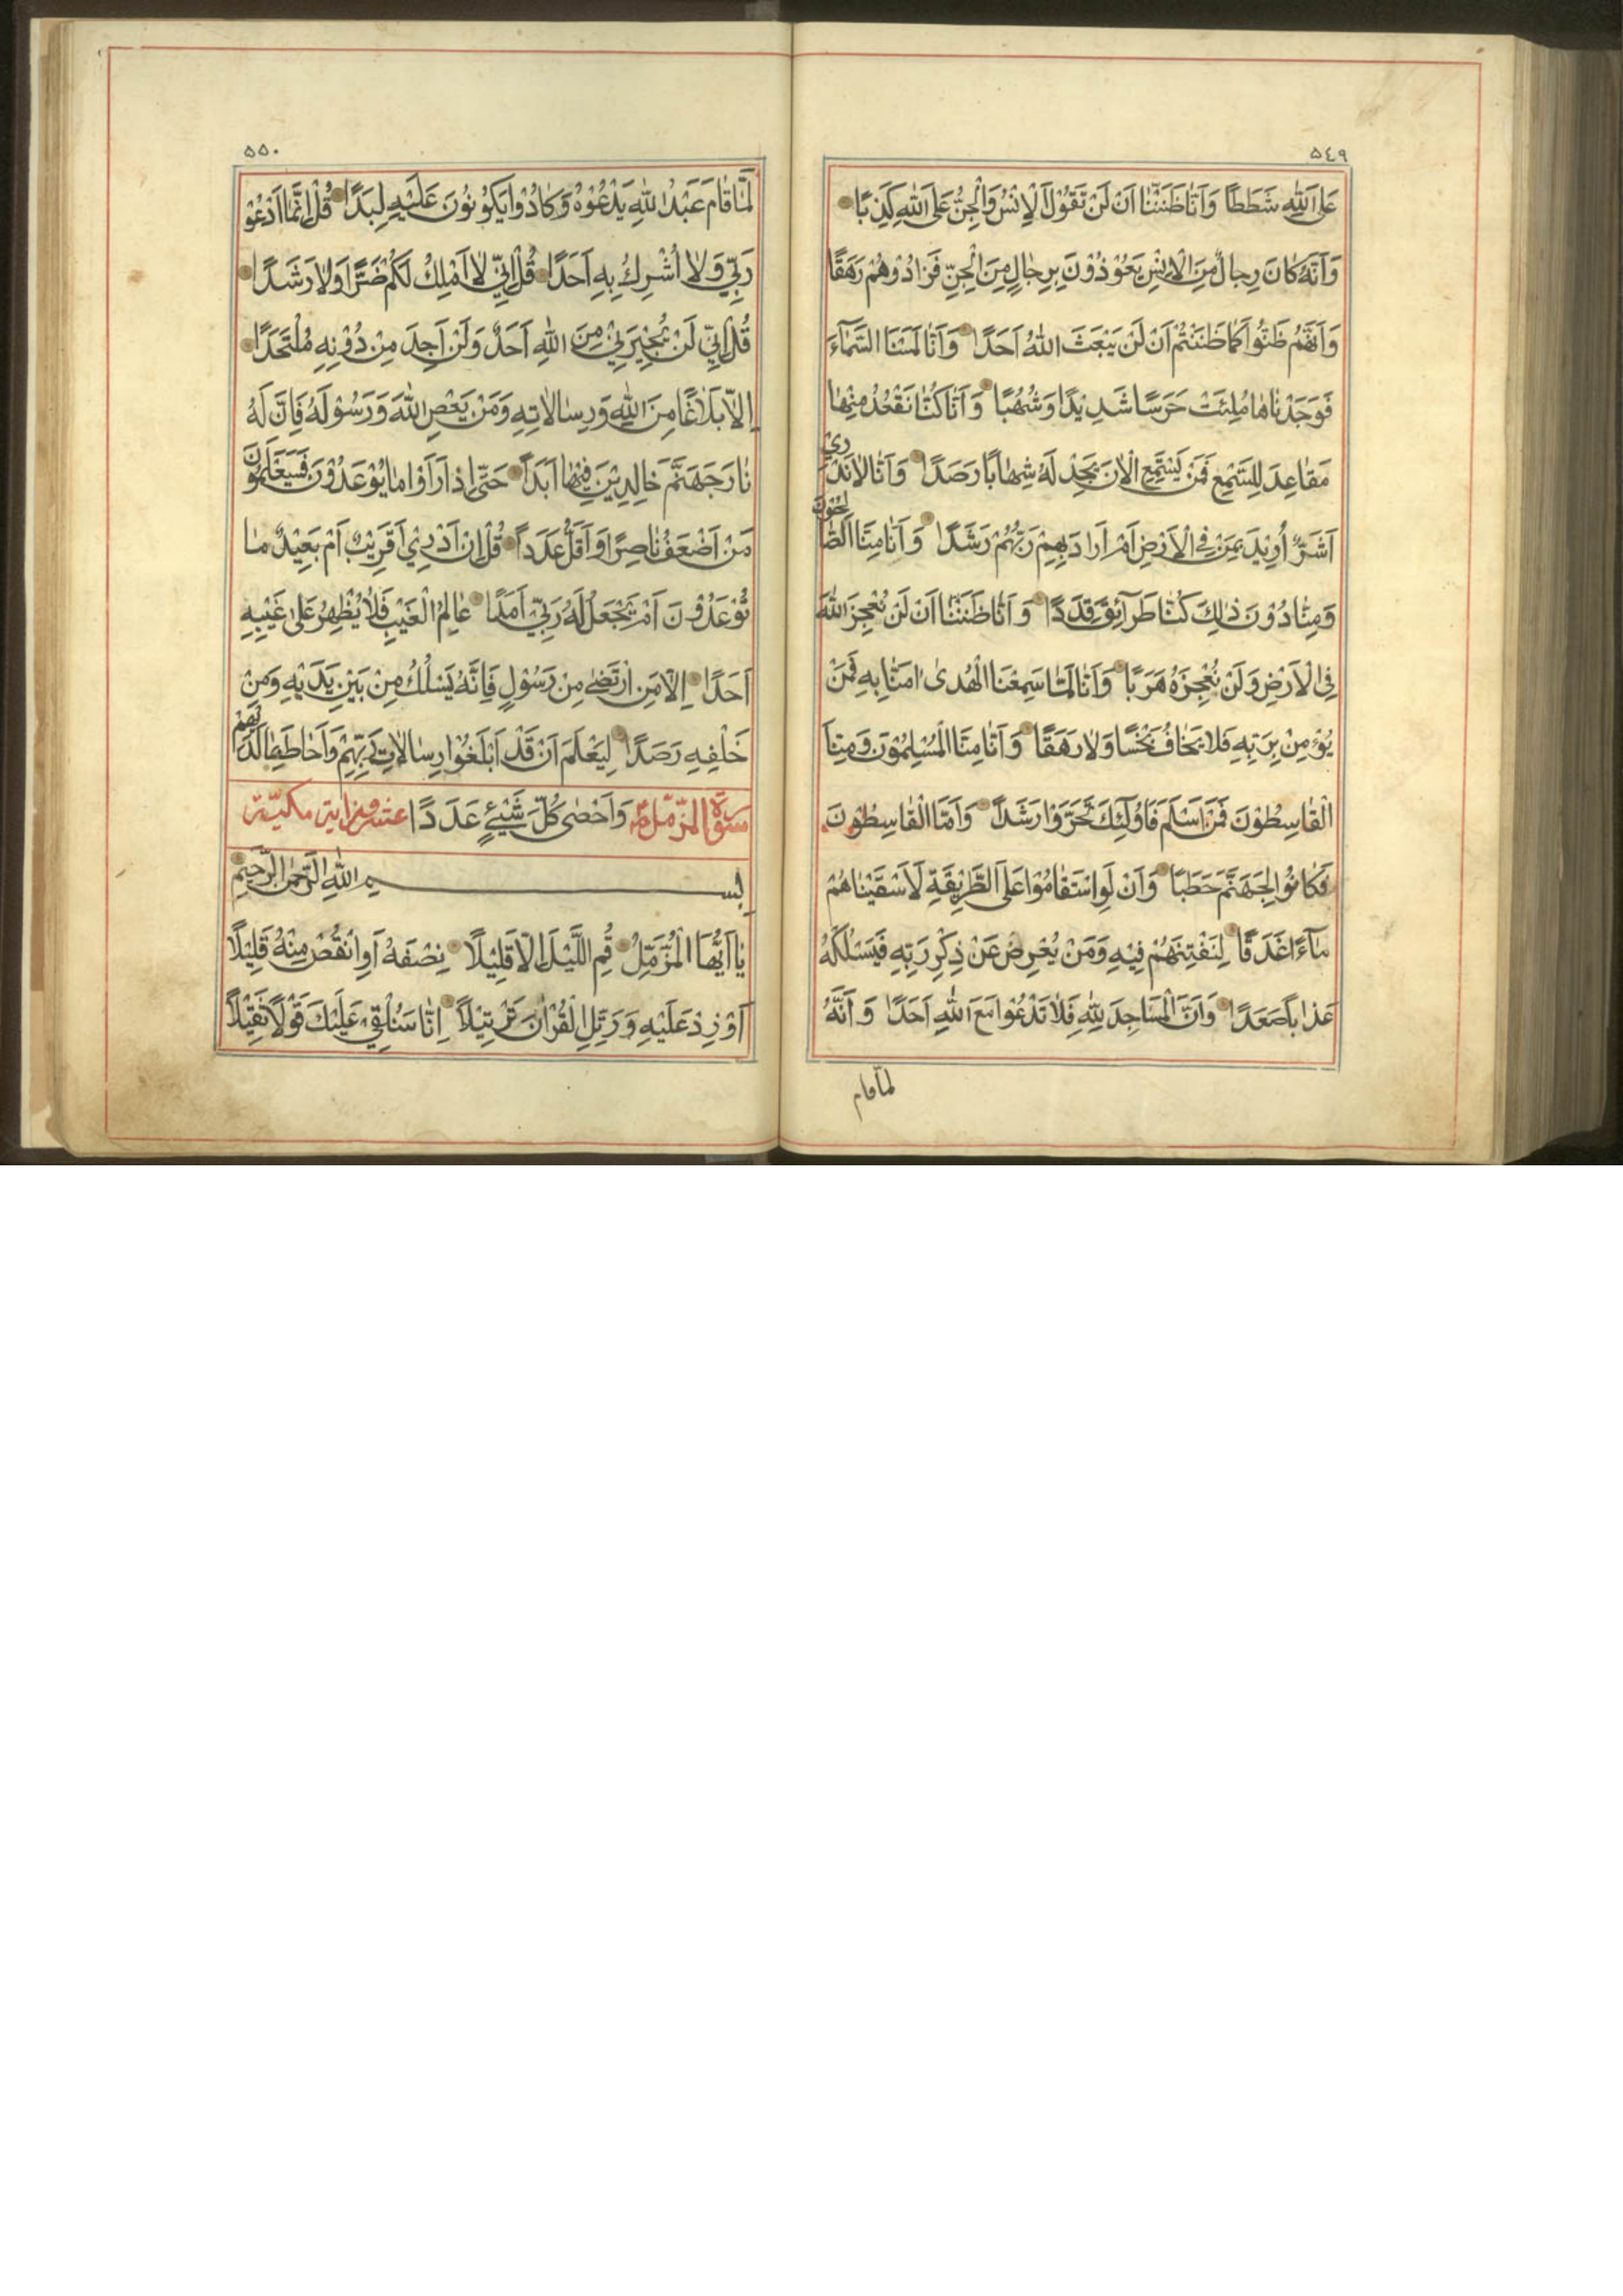 ٥٤٩
عَلَى اللّٰهِ شَطَطًا وَاَنَّا ظَنَنَّا اَنْ لَنْ تَقُوْلَ الْاِنْسُ وَالْجِنُّ عَلَى اللّٰهِ كَذِبًا
وَاَنَّهُ كَانَ رِجَالٌ مِنَ الْاِنْسِ يَعُوْذُوْنَ بِرِجَالٍ مِنَ الْجِنِّ فَزَادُوْهُمْ رَهَقًا
وَاَنَّهُمْ ظَنُّوْا كَمَا ظَنَنْتُمْ اَنْ لَنْ يَبْعَثَ اللّٰهُ اَحَدًا وَاَنَّا لَمَسْنَا السَّمَآءَ
فَوَجَدْنَاهَا مُلِئَتْ حَرَسًا شَدِيْدًا وَشُهُبًا وَاَنَّا كُنَّا نَقْعُدُ مِنْهَا
مَقَاعِدَ لِلسَّمْعِ فَمَنْ يَسْتَمِعِ الْاٰنَ يَجِدْ لَهُ شِهَابًا رَصَدًا وَاَنَّا لَا نَدْرِيْ
اَشَرٌّ اُرِيْدَ بِمَنْ فِى الْاَرْضِ اَمْ اَرَادَ بِهِمْ رَبُّهُمْ رَشَدًا وَاَنَّا مِنَّا الصَّالِحُوْنَ
وَمِنَّا دُوْنَ ذٰلِكَ كُنَّا طَرَآئِقَ قِدَدًا وَاَنَّا ظَنَنَّا اَنْ لَنْ نُعْجِزَ اللّٰهَ
فِى الْاَرْضِ وَلَنْ نُعْجِزَهُ هَرَبًا وَاَنَّا لَمَّا سَمِعْنَا الْهُدٰى اٰمَنَّا بِهِ فَمَنْ
يُؤْمِنْ بِرَبِّهِ فَلَا يَخَافُ بَخْسًا وَلَا رَهَقًا وَاَنَّا مِنَّا الْمُسْلِمُوْنَ وَمِنَّا
الْقَاسِطُوْنَ فَمَنْ اَسْلَمَ فَاُولٰٓئِكَ تَحَرَّوْا رَشَدًا وَاَمَّا الْقَاسِطُوْنَ
فَكَانُوْا لِجَهَنَّمَ حَطَبًا وَاَنْ لَوِ اسْتَقَامُوْا عَلَى الطَّرِيْقَةِ لَاَسْقَيْنَاهُمْ
مَآءً غَدَقًا لِنَفْتِنَهُمْ فِيْهِ وَمَنْ يُعْرِضْ عَنْ ذِكْرِ رَبِّهِ فَيَسْلُكْهُ
عَذَابًا صَعَدًا وَاَنَّ الْمَسَاجِدَ لِلّٰهِ فَلَا تَدْعُوْا مَعَ اللّٰهِ اَحَدًا وَاَنَّهُ
لمّا قام
٥٥٠
لَمَّا قَامَ عَبْدُ اللّٰهِ يَدْعُوْهُ وَكَادُوْا يَكُوْنُوْنَ عَلَيْهِ لِبَدًا قُلْ اِنَّمَا اَدْعُوْ
رَبِّيْ وَلَا اُشْرِكُ بِهِ اَحَدًا قُلْ اِنِّيْ لَا اَمْلِكُ لَكُمْ ضَرًّا وَلَا رَشَدًا
قُلْ اِنِّيْ لَنْ يُجِيْرَنِيْ مِنَ اللّٰهِ اَحَدٌ وَلَنْ اَجِدَ مِنْ دُوْنِهِ مُلْتَحَدًا
اِلَّا بَلَاغًا مِنَ اللّٰهِ وَرِسَالَاتِهِ وَمَنْ يَعْصِ اللّٰهَ وَرَسُوْلَهُ فَاِنَّ لَهُ
نَارَ جَهَنَّمَ خَالِدِيْنَ فِيْهَا اَبَدًا حَتّٰى اِذَا رَاَوْا مَا يُوْعَدُوْنَ فَسَيَعْلَمُوْنَ
مَنْ اَضْعَفُ نَاصِرًا وَاَقَلُّ عَدَدًا قُلْ اِنْ اَدْرِيْ اَقَرِيْبٌ اَمْ بَعِيْدٌ مَا
تُوْعَدُوْنَ اَمْ يَجْعَلُ لَهُ رَبِّيْ اَمَدًا عَالِمُ الْغَيْبِ فَلَا يُظْهِرُ عَلٰى غَيْبِهِ
اَحَدًا اِلَّا مَنِ ارْتَضٰى مِنْ رَسُوْلٍ فَاِنَّهُ يَسْلُكُ مِنْ بَيْنِ يَدَيْهِ وَمِنْ
خَلْفِهِ رَصَدًا لِيَعْلَمَ اَنْ قَدْ اَبْلَغُوْا رِسَالَاتِ رَبِّهِمْ وَاَحَاطَ بِمَا لَدَيْهِمْ
سورة المزّمّل وَاَحْصٰى كُلَّ شَيْئٍ عَدَدًا عشرون اية مكيّة
بِسْمِ اللّٰهِ الرَّحْمٰنِ الرَّحِيْمِ
يَا اَيُّهَا الْمُزَّمِّلُ قُمِ اللَّيْلَ اِلَّا قَلِيْلًا نِصْفَهُ اَوِ انْقُصْ مِنْهُ قَلِيْلًا
اَوْ زِدْ عَلَيْهِ وَرَتِّلِ الْقُرْاٰنَ تَرْتِيْلًا اِنَّا سَنُلْقِيْ عَلَيْكَ قَوْلًا ثَقِيْلًا